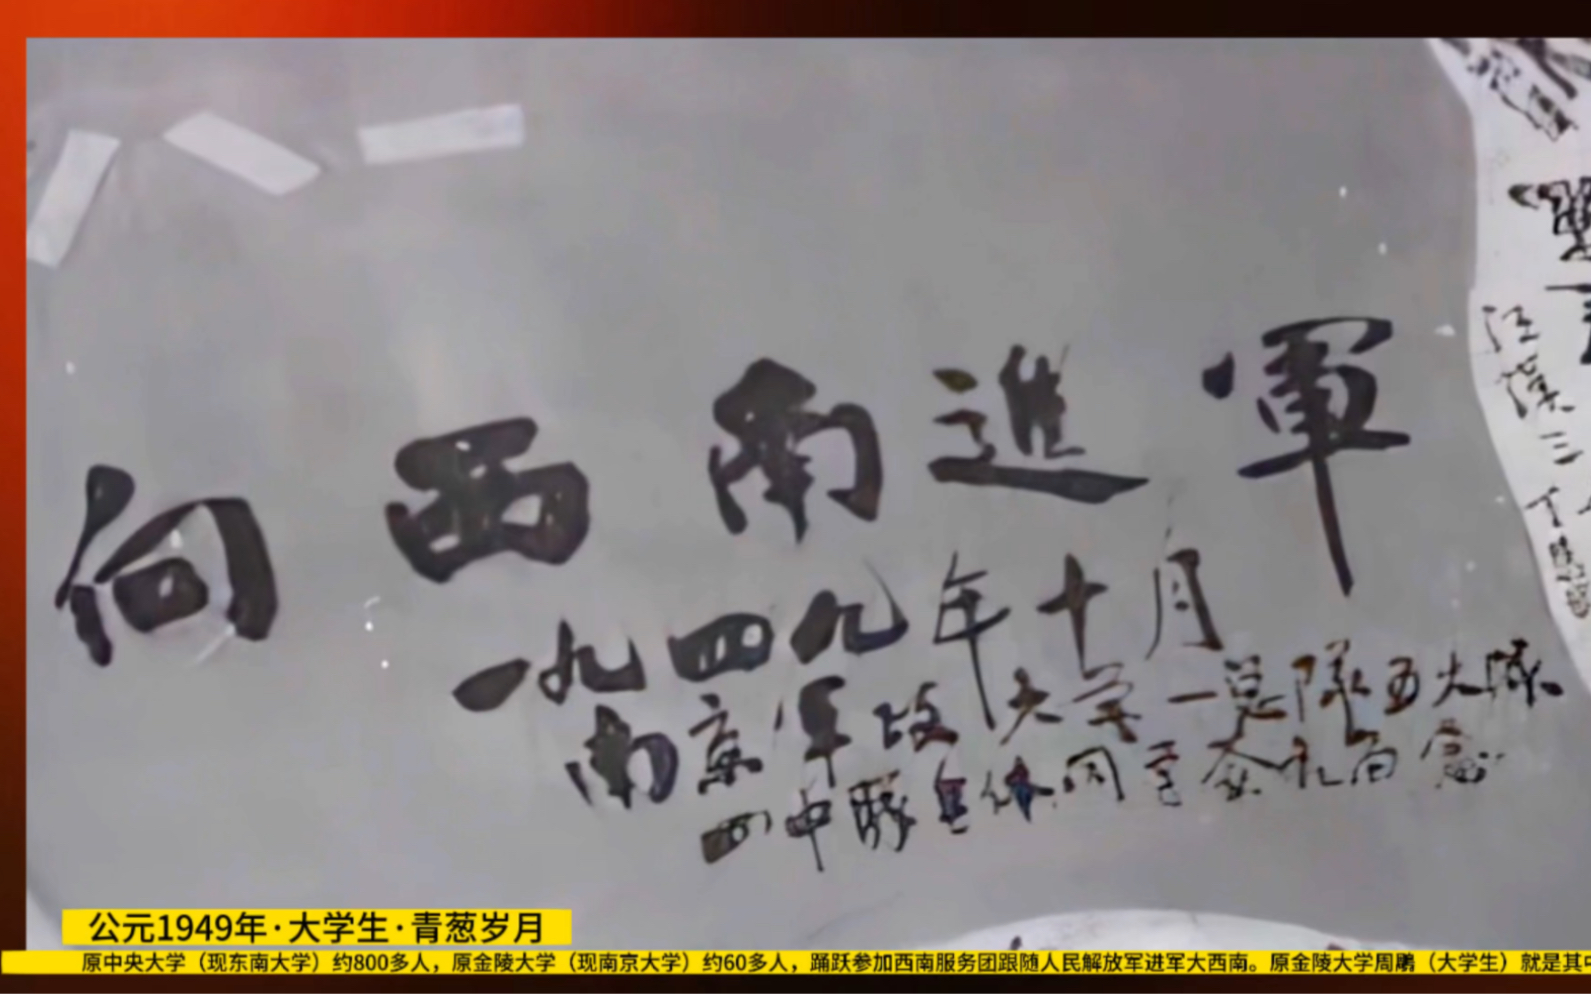 向西南進軍
一九四九年十月
南京军政大学一总隊五大隊
四中隊全体同学 留念
江漢三
公元1949年·大学生·青葱岁月
原中央大学（现东南大学）约800多人，原金陵大学（现南京大学）约60多人，踊跃参加西南服务团跟随人民解放军进军大西南。原金陵大学周鵰（大学生）就是其中